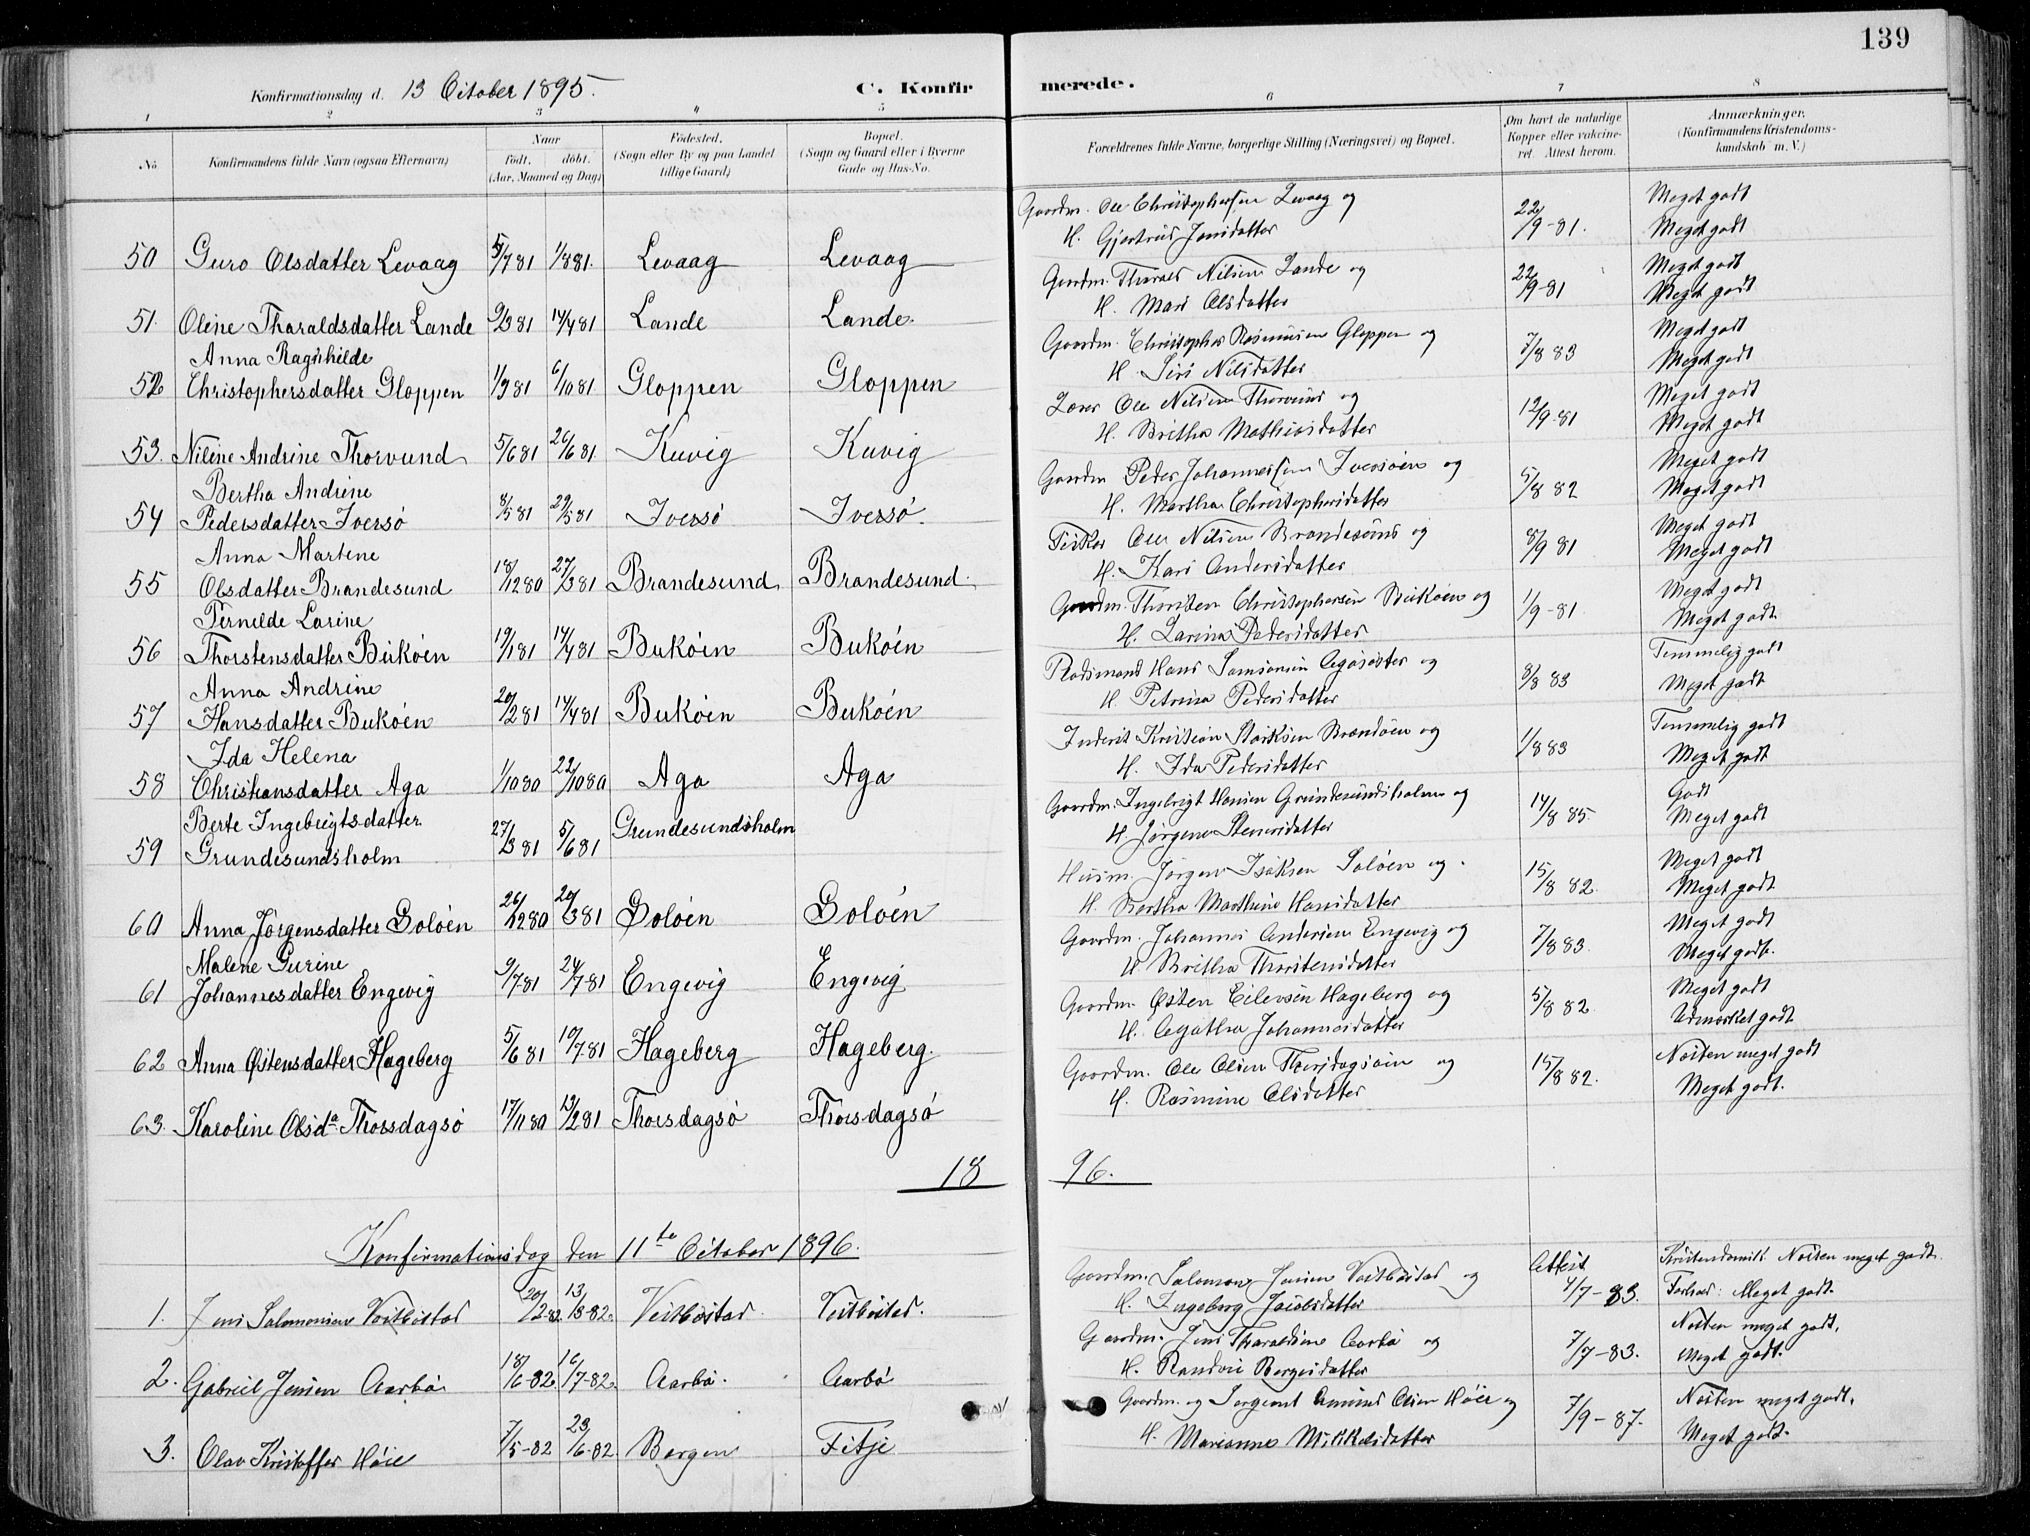 139
Konfirmationsdag d. 13 October 1895.
C. Konfirmerede.
1 2 3 4 5 6 7 8
No
Konfirmandens fulde Navn (ogsaa Efternavn)
Naar
født. døbt.
(Aar, Maaned og Dag)
Fødested.
(Sogn eller By og paa Landet
tillige Gaard)
Bopæl.
(Sogn og Gaard eller i Byerne
Gade og Hus-No.
Forældrenes fulde Navne, borgerlige Stilling (Næringsvei) og Bopæl.
Om havt de naturlige
Kopper eller vaccine-
ret. Attest herom.
Anmærkninger.
(Konfirmandens Kristendoms-
kundskab m. V.)
50 Guro Olsdatter Levaag 5/7 81 1/8 81. Levaag Levaag
Gaardm. Ole Christophersen Levaag og 22/9-81. Meget godt
H. Gjertrud Jensdatter Meget godt
51. Oline Tharaldsdatter Lande 9/3 81 14/4 81 Lande Lande.
Gaardm. Tharald Nilsen Lande og 22/9-81 Meget godt
H. Mari Olsdatter Meget godt
Anna Ragnhilde
52 Christophersdatter Gloppen 1/9 81 6/10 81 Gloppen Gloppen
Gaardm. Christopher Rasmusen Gloppen og 7/8 83 Meget godt
H. Siri Nilsdatter Meget godt
53. Niline Andrine Thorvund 5/6 81 26/6 81 Kuvig Kuvig
Lærer Ole Nilsen Thorvund og 12/9-81 Meget godt
H. Britha Mathiasdatter Meget godt
Bertha Andrine
54 Pedersdatter Iversø 8/5 81 29/5 81 Iversø Iversø.
Gaardm Peder Johannessen Iversøen og 5/8 82 Meget godt
H. Martha Christophersdatter Meget godt
Anna Martene
55 Olsdatter Brandesund 18/12 80 27/3 81 Brandesund Brandesund.
Fisker Ole Nilsen Brandesund og 8/9 81 Meget godt
H. Kari Andersdatter Meget godt
Pernilde Larine
56 Thorstensdatter Bukøen 19/1 81 14/4 81 Bukøen Bukøen
Gaardm. Thorsten Christophersen Bukøen og 1/9-81 Meget godt
H. Larina Pedersdatter Meget godt.
Anna Andrine
57 Hansdatter Bukøen 20/2 81 14/4 81 Bukøen Bukøen
Pladsmand Hans Samsonsen Agasøster og 8/8 83 Temmelig godt
H. Petrina Pedersdatter Meget godt
Ida Helena
58 Christiansdatter Aga 1/10 80 22/10 80 Aga Aga
Inderst Kristian Isaksen Brandøen og 1/8 83 Temmelig godt
H. Ida Pedersdatter Meget godt
Berte Ingebrigtsdatter
59 Grundesundsholm 27/3 81 5/6 81 Grundesundsholm
Gaardm. Ingebrigt Hansen Grundesundsholm og 14/8 85. Godt
H. Jørgine Stenersdatter Meget godt
60 Anna Jørgensdatter Soløen 26/12 80 20/3 81 Soløen Soløen
Husm. Jørgen Isaksen Soløen og 15/8 82. Meget godt
H Bertha Marthine Hansdatter Meget godt
Malene Gurine
61 Johannesdatter Engevig 9/7 81 24/7 81 Engevig Engevig
Gaardm. Johannes Andersen Engevig og 7/8 83. Meget godt
H Britha Thorstensdatter Meget godt.
62 Anna Østensdatter Hageberg 5/6 81 10/7 81 Hageberg Hageberg.
Gaardm. Østen Eilevsen Hageberg og 5/8 82. Meget godt
H. Agatha Johannesdatter Udmærket godt
63. Karoline Olsda Thorsdagsø 17/11 80 13/2 81 Thorsdagsø Thorsdagsø
Gaardm. Ole Olsen Thorsdagsøen og 15/8 82. Næsten meget godt
H. Rasmine Olsdatter Meget godt.
18 96.
Konfirmationsdag den 11te October 1896.
1. Jens Salomonsen Vestbøstad 20/2 82 13/8-82. Vestbøstad Vestbøstad.
Gaardm. Salomon Jensen Vestbøstad og Attest 4/7-83. Kristendomsk. Næsten meget godt.
H. Ingeborg Jacobsdatter Forhold: Meget godt.
2. Gabriel Jensen Aarbø 18/6-82 16/7-82. Aarbø. Aarbø
Gaardm. Jens Tharaldsen Aarbø og 7/7-83. Næsten meget godt.
H. Randvei Børgesdatter Meget godt.
3. Olav Kristoffer Høie 7/5-82 23/6-82 Bergen Fitje
Gaardm. og Sergeant Olsen Høie og 7/9-87. Næsten meget godt.
H. Marianne Mikkelsdatter Meget godt.